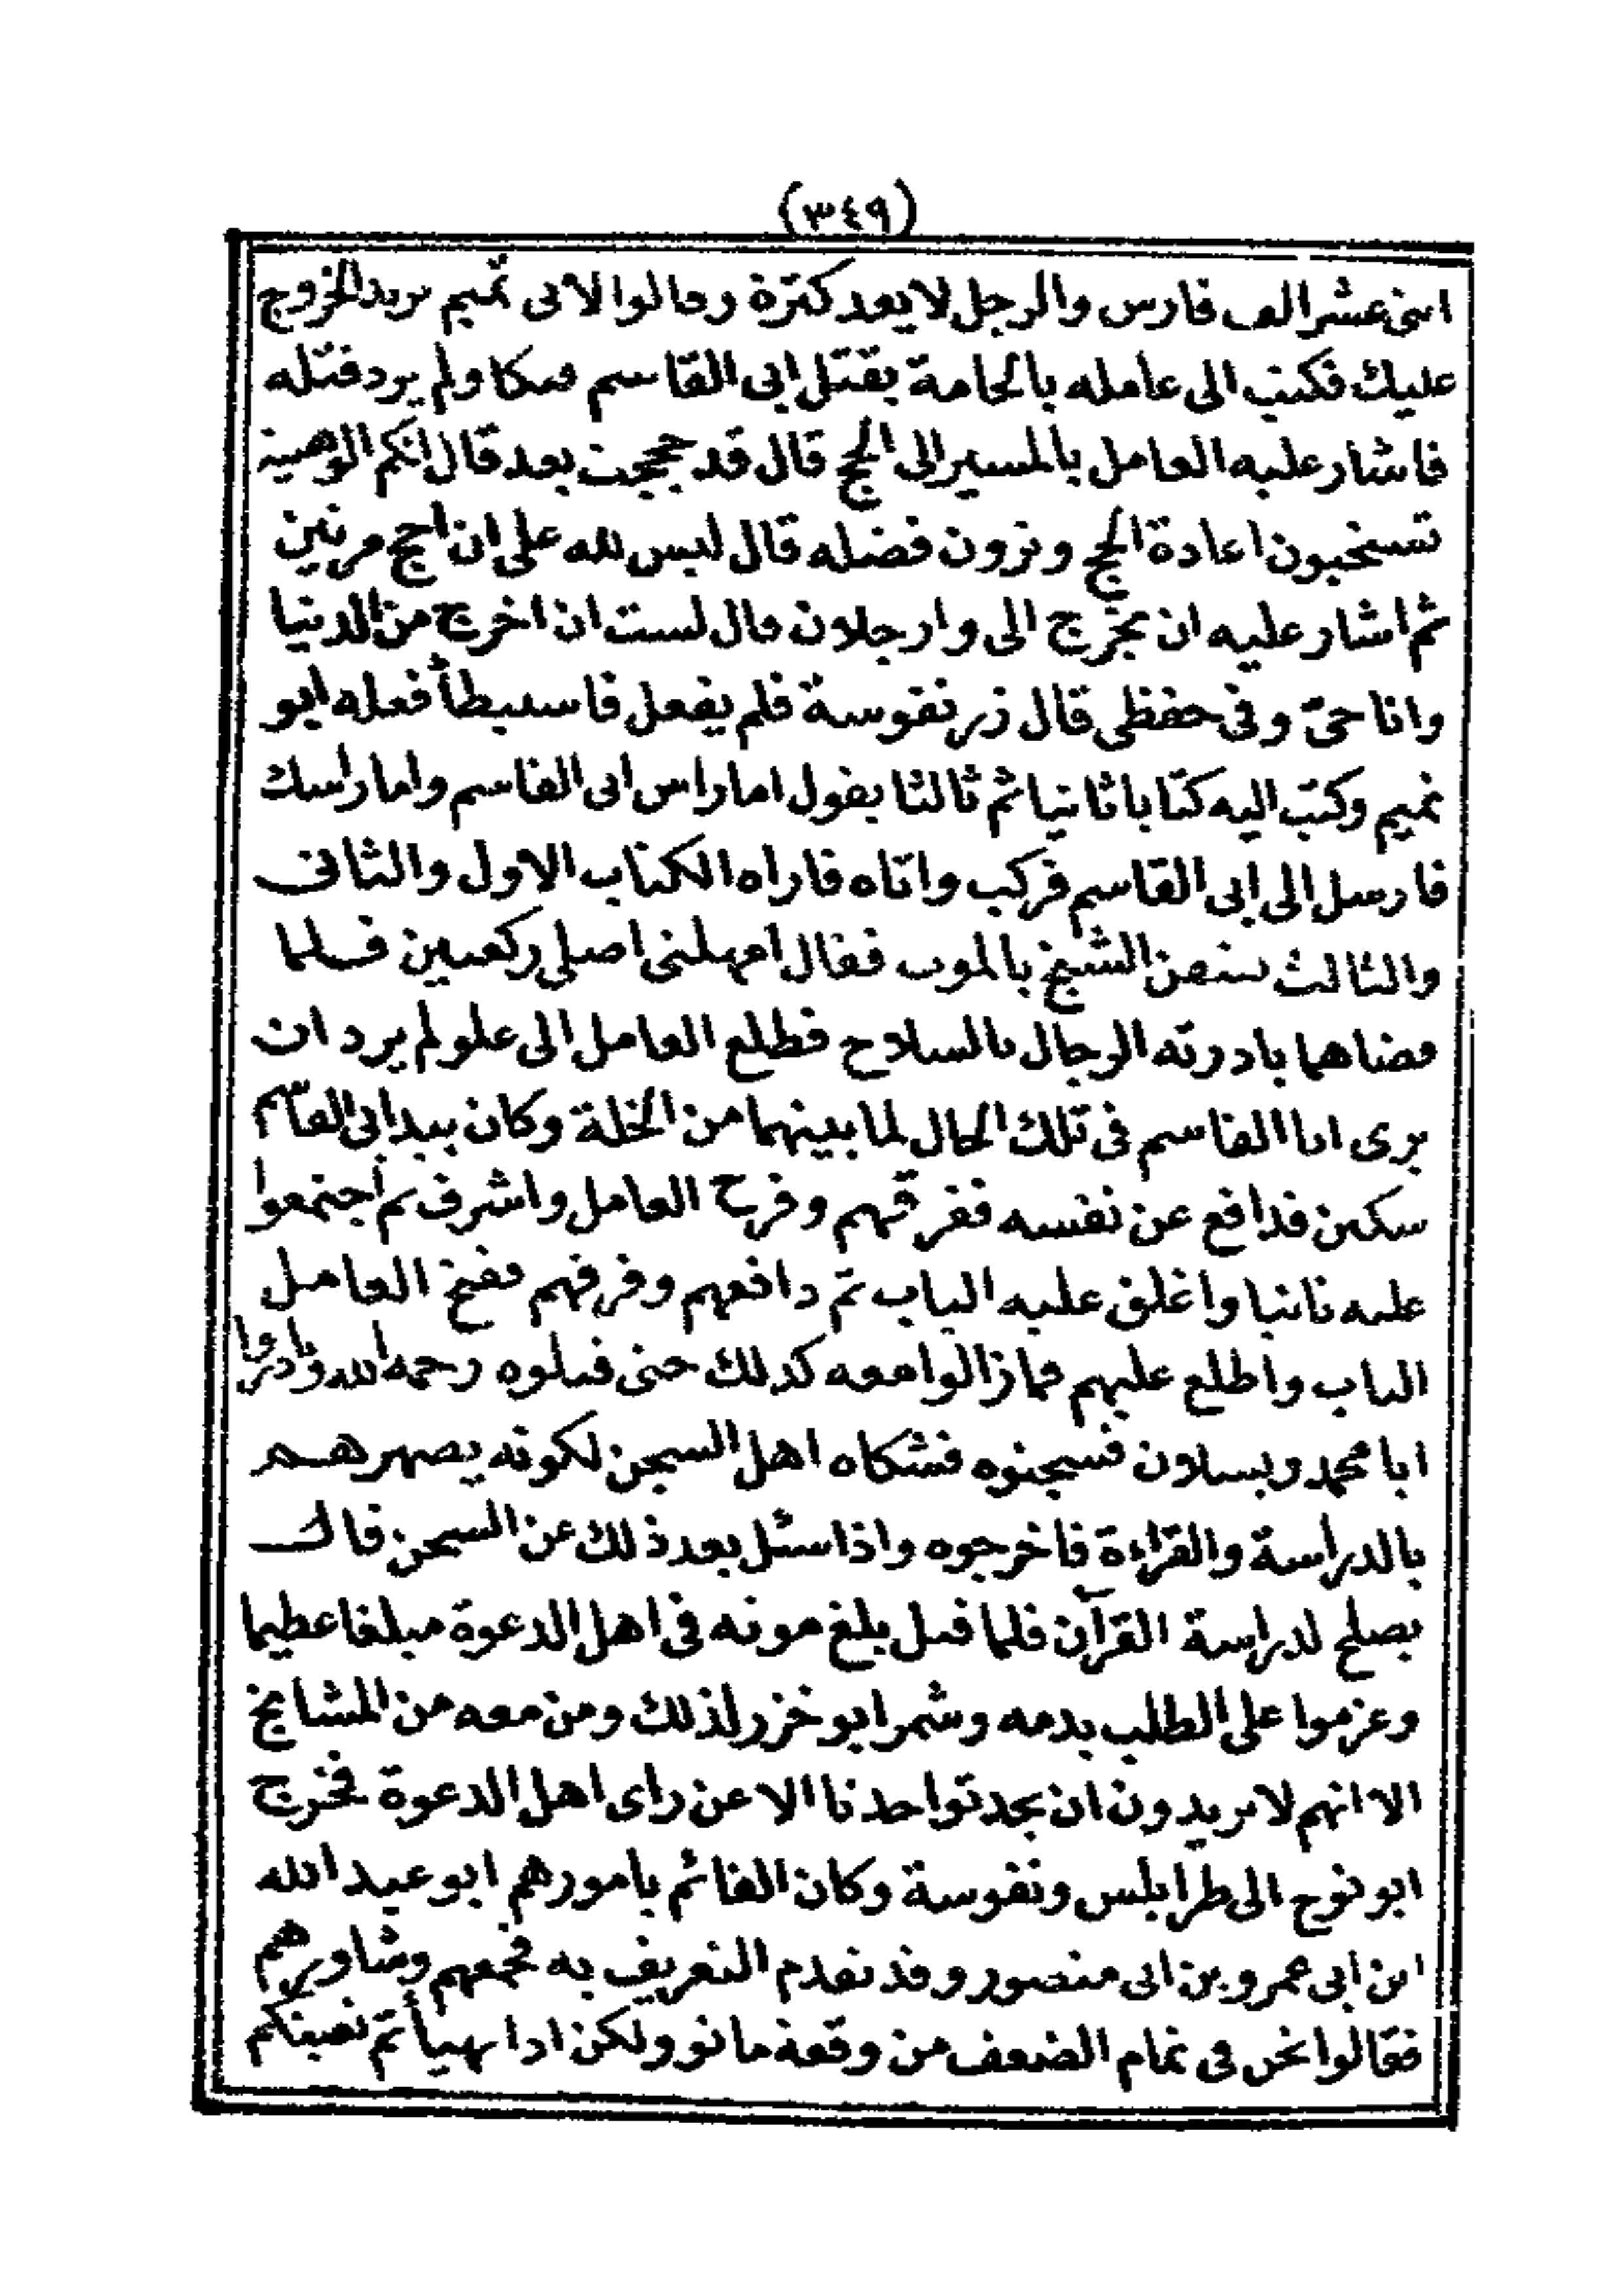 (٣٤٩)
اثنى عشر الف فارس والرجل لا يعد كثرة وقالوا لابى تميم يريد الخروج
عليك فكتب الى عامله بالحامة بقتل ابى القاسم فتلكا ولم يرد قتله
فاشار عليه العامل بالمسير الى الحج قال قد حججت بعد قال انكم الوهبية
تستحبون اعادة الحج وترون فضله قال ليس لله على ان احج مرتين
ثم اشار عليه ان يخرج الى وارجلان قال لست ان اخرج من الدنيا
وانا حىّ وفى حفظى قال زر نفوسة فلم يفعل فاستبطأ فعله ابو
تميم وكتب اليه كتابا ثانيا ثم ثالثا يقول اما راس ابى القاسم واما راسك
فارسل الى ابى القاسم فركب واتاه فاراه الكتاب الاول والثانى
والثالث الشيخ بالموت فقال امهلنى اصلى ركعتين فلما
قضاهما بادرته الرجال بالسلاح فطلع العامل الى علو لم يرد ان
يرى ابا القاسم فى تلك الحال لما بينهما من الخلة وكان بيد ابى القاسم
سكين فدافع عن نفسه ففرقهم وفرح العامل واشرف ثم اجتمعوا
عليه ثانيا واغلق عليه الباب ثم دافعهم وفرقهم ففتح العامل
الباب واطلع عليهم فمازالوا معه كذلك حتى قتلوه رحمه الله
ابا محمد ويسلان فسجنوه فشكاه اهل السجن لكونه يصهرهم
بالدراسة والقراءة فاخرجوه واذا سئل بعد ذلك عن السجن قال
يصلح لدراسة القرآن فلما قتل بلغ موته فى اهل الدعوة مبلغا عظيما
وعزموا على الطلب بدمه وشمر ابو خزر لذلك ومن معه من المشايخ
الا انهم لا يريدون ان يحدثوا حدثا الا عن راى اهل الدعوة فخرج
ابو نوح الى طرابلس ونفوسة وكان القائم بامورهم ابو عبد الله
ابن ابى عمرو بن ابى منصور وقد تقدم التعريف به فجمعهم وشاورهم
فقالوا نحن فى تمام الضعف من وقعة مانو ولكن اذا تهيأتم